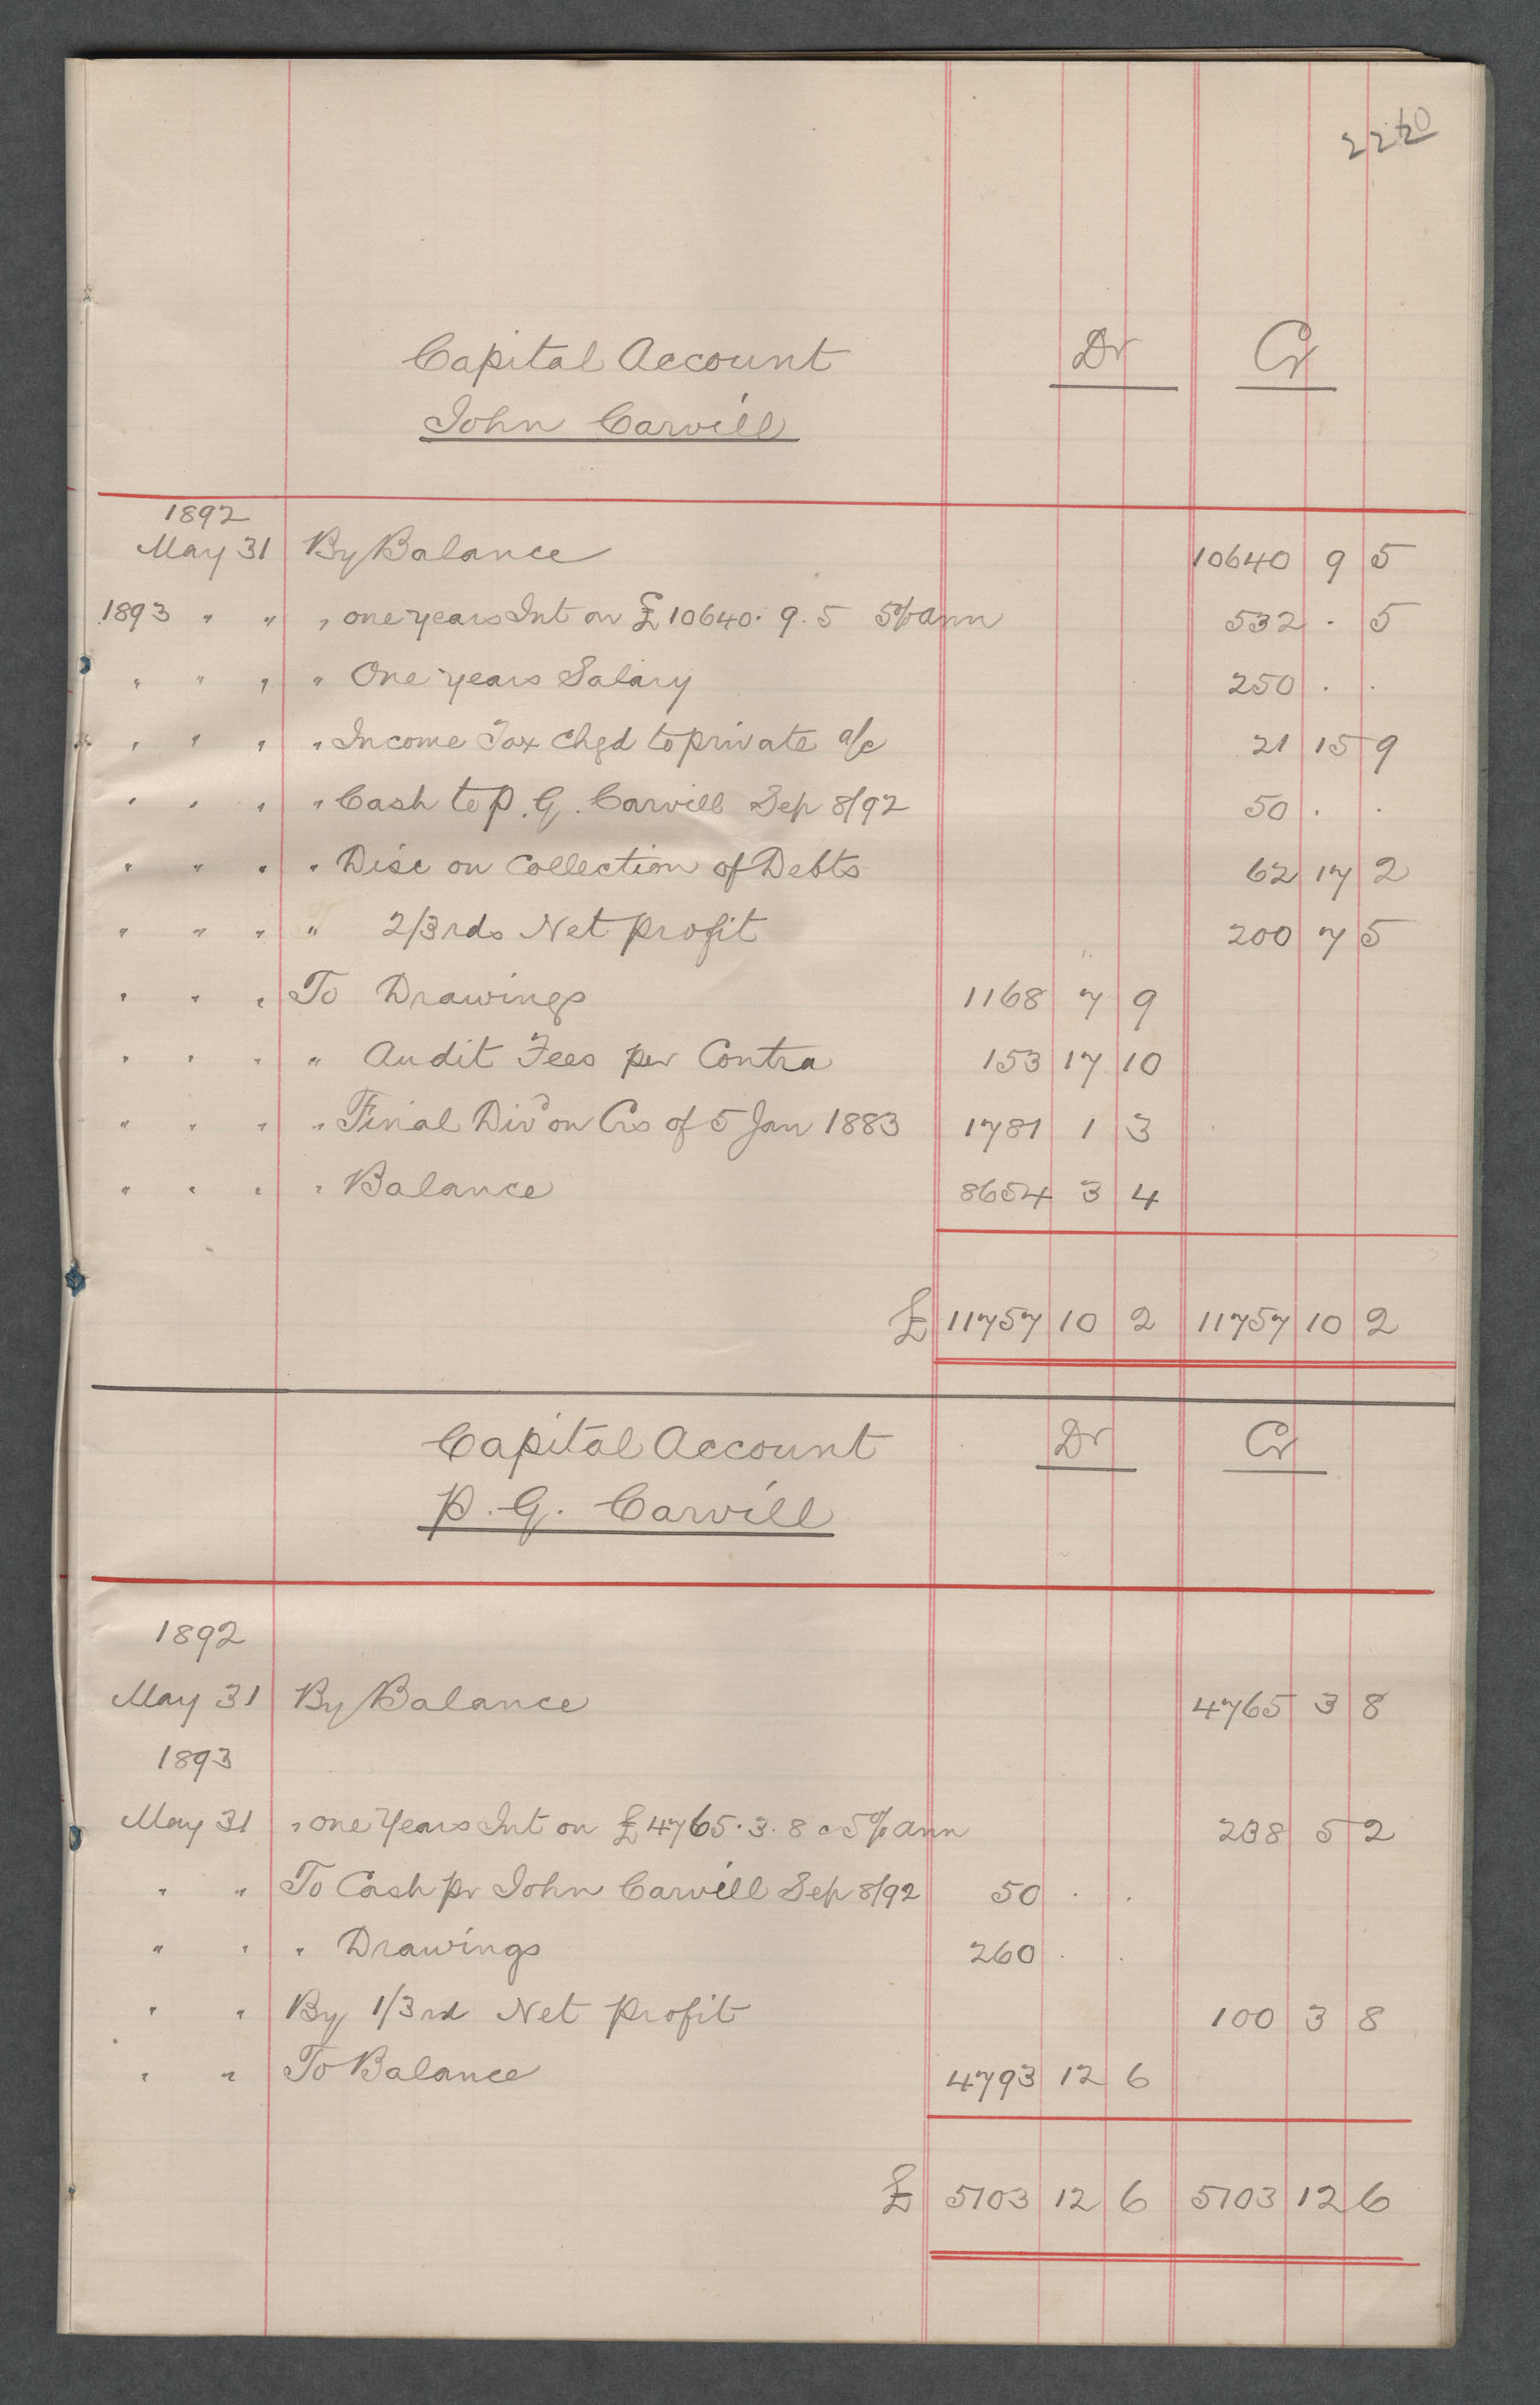 Capital Account Dr Cr
John Carvill
1892
May 31 By Balance 10640 9 5
1893 " " " one years Int on £10640. 9. 5 5% ann 532 . 5
" " " " One years Salary 250 . .
" " " " Income Tax chgd to private a/c 21 15 9
" " " " Cash to P. G. Carvill Sep 8/92 50 . .
" " " " Disc on Collection of Debts 62 17 2
" " " " 2/3rds Net Profit 200 7 5
" " " To Drawings 1168 7 9
" " " " Audit Fees per Contra 153 17 10
" " " " Final Divd on Crs of 5 Jan 1883 1781 1 3
" " " " Balance 8654 3 4
£ 11757 10 2 11757 10 2
Capital Account Dr Cr
P. G. Carvill
1892
May 31 By Balance 4765 3 8
1893
May 31 " one Years Int on £4765. 3. 8 @ 5% ann 238 5 2
" " To Cash pr John Carvill Sep 8/92 50 . .
" " " Drawings 260 . .
" " By 1/3rd Net Profit 100 3 8
" " To Balance 4793 12 6
£ 5103 12 6 5103 12 6